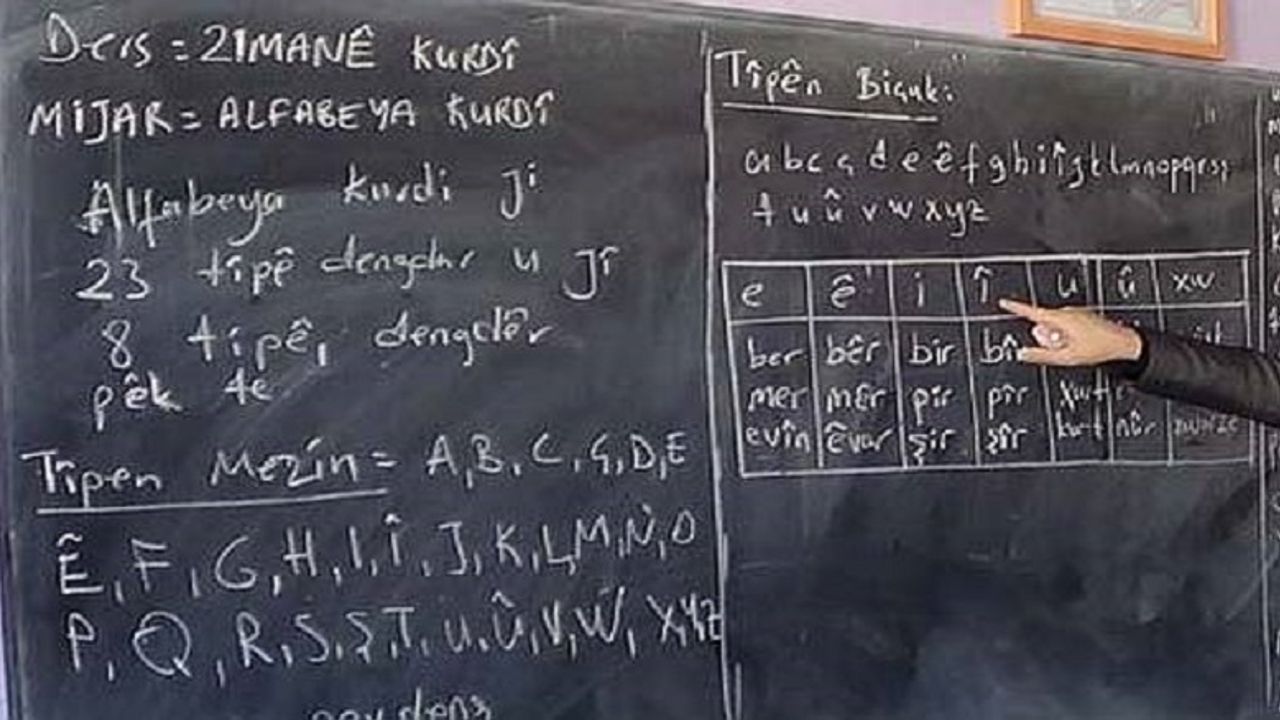 Ders = ZIMANÊ KURDÎ
MIJAR = ALFABEYA KURDÎ
Alfabeya kurdi Ji
23 tîpê dengdar u Jî
8 tîpê, dengdêr
pêk te
Tîpen Mezin = A, B, C, Ç, D, E
Ê, F, G, H, I, Î, J, K, L, M, N, O
P, Q, R, S, Ş, T, U, Û, V, W, X, Y, Z
Tîpên Biçuk:
a b c ç d e ê f g h i î j k l m n o p q r s ş
t u û v w x y z
e ê i î u û xw
ber bêr bir
mer mêr pir pîr
evîn êvar şir şîr kurt nûr